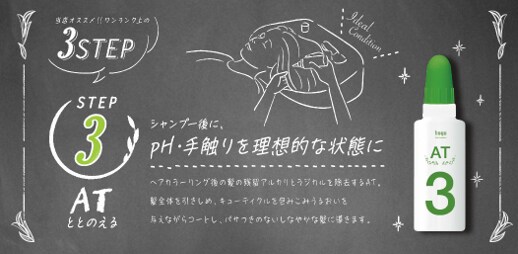 当店オススメ!! ワンランク上の
3STEP
Ideal
Condition
STEP
3
AT
ととのえる
シャンプー後に、
pH・手触りを理想的な状態に
ヘアカラーリング後の髪の残留アルカリとラジカルを除去するAT。
髪全体を引きしめ、キューティクルを包みこみうるおいを
与えながらコートし、パサつきのないしなやかな髪に導きます。
AT
3